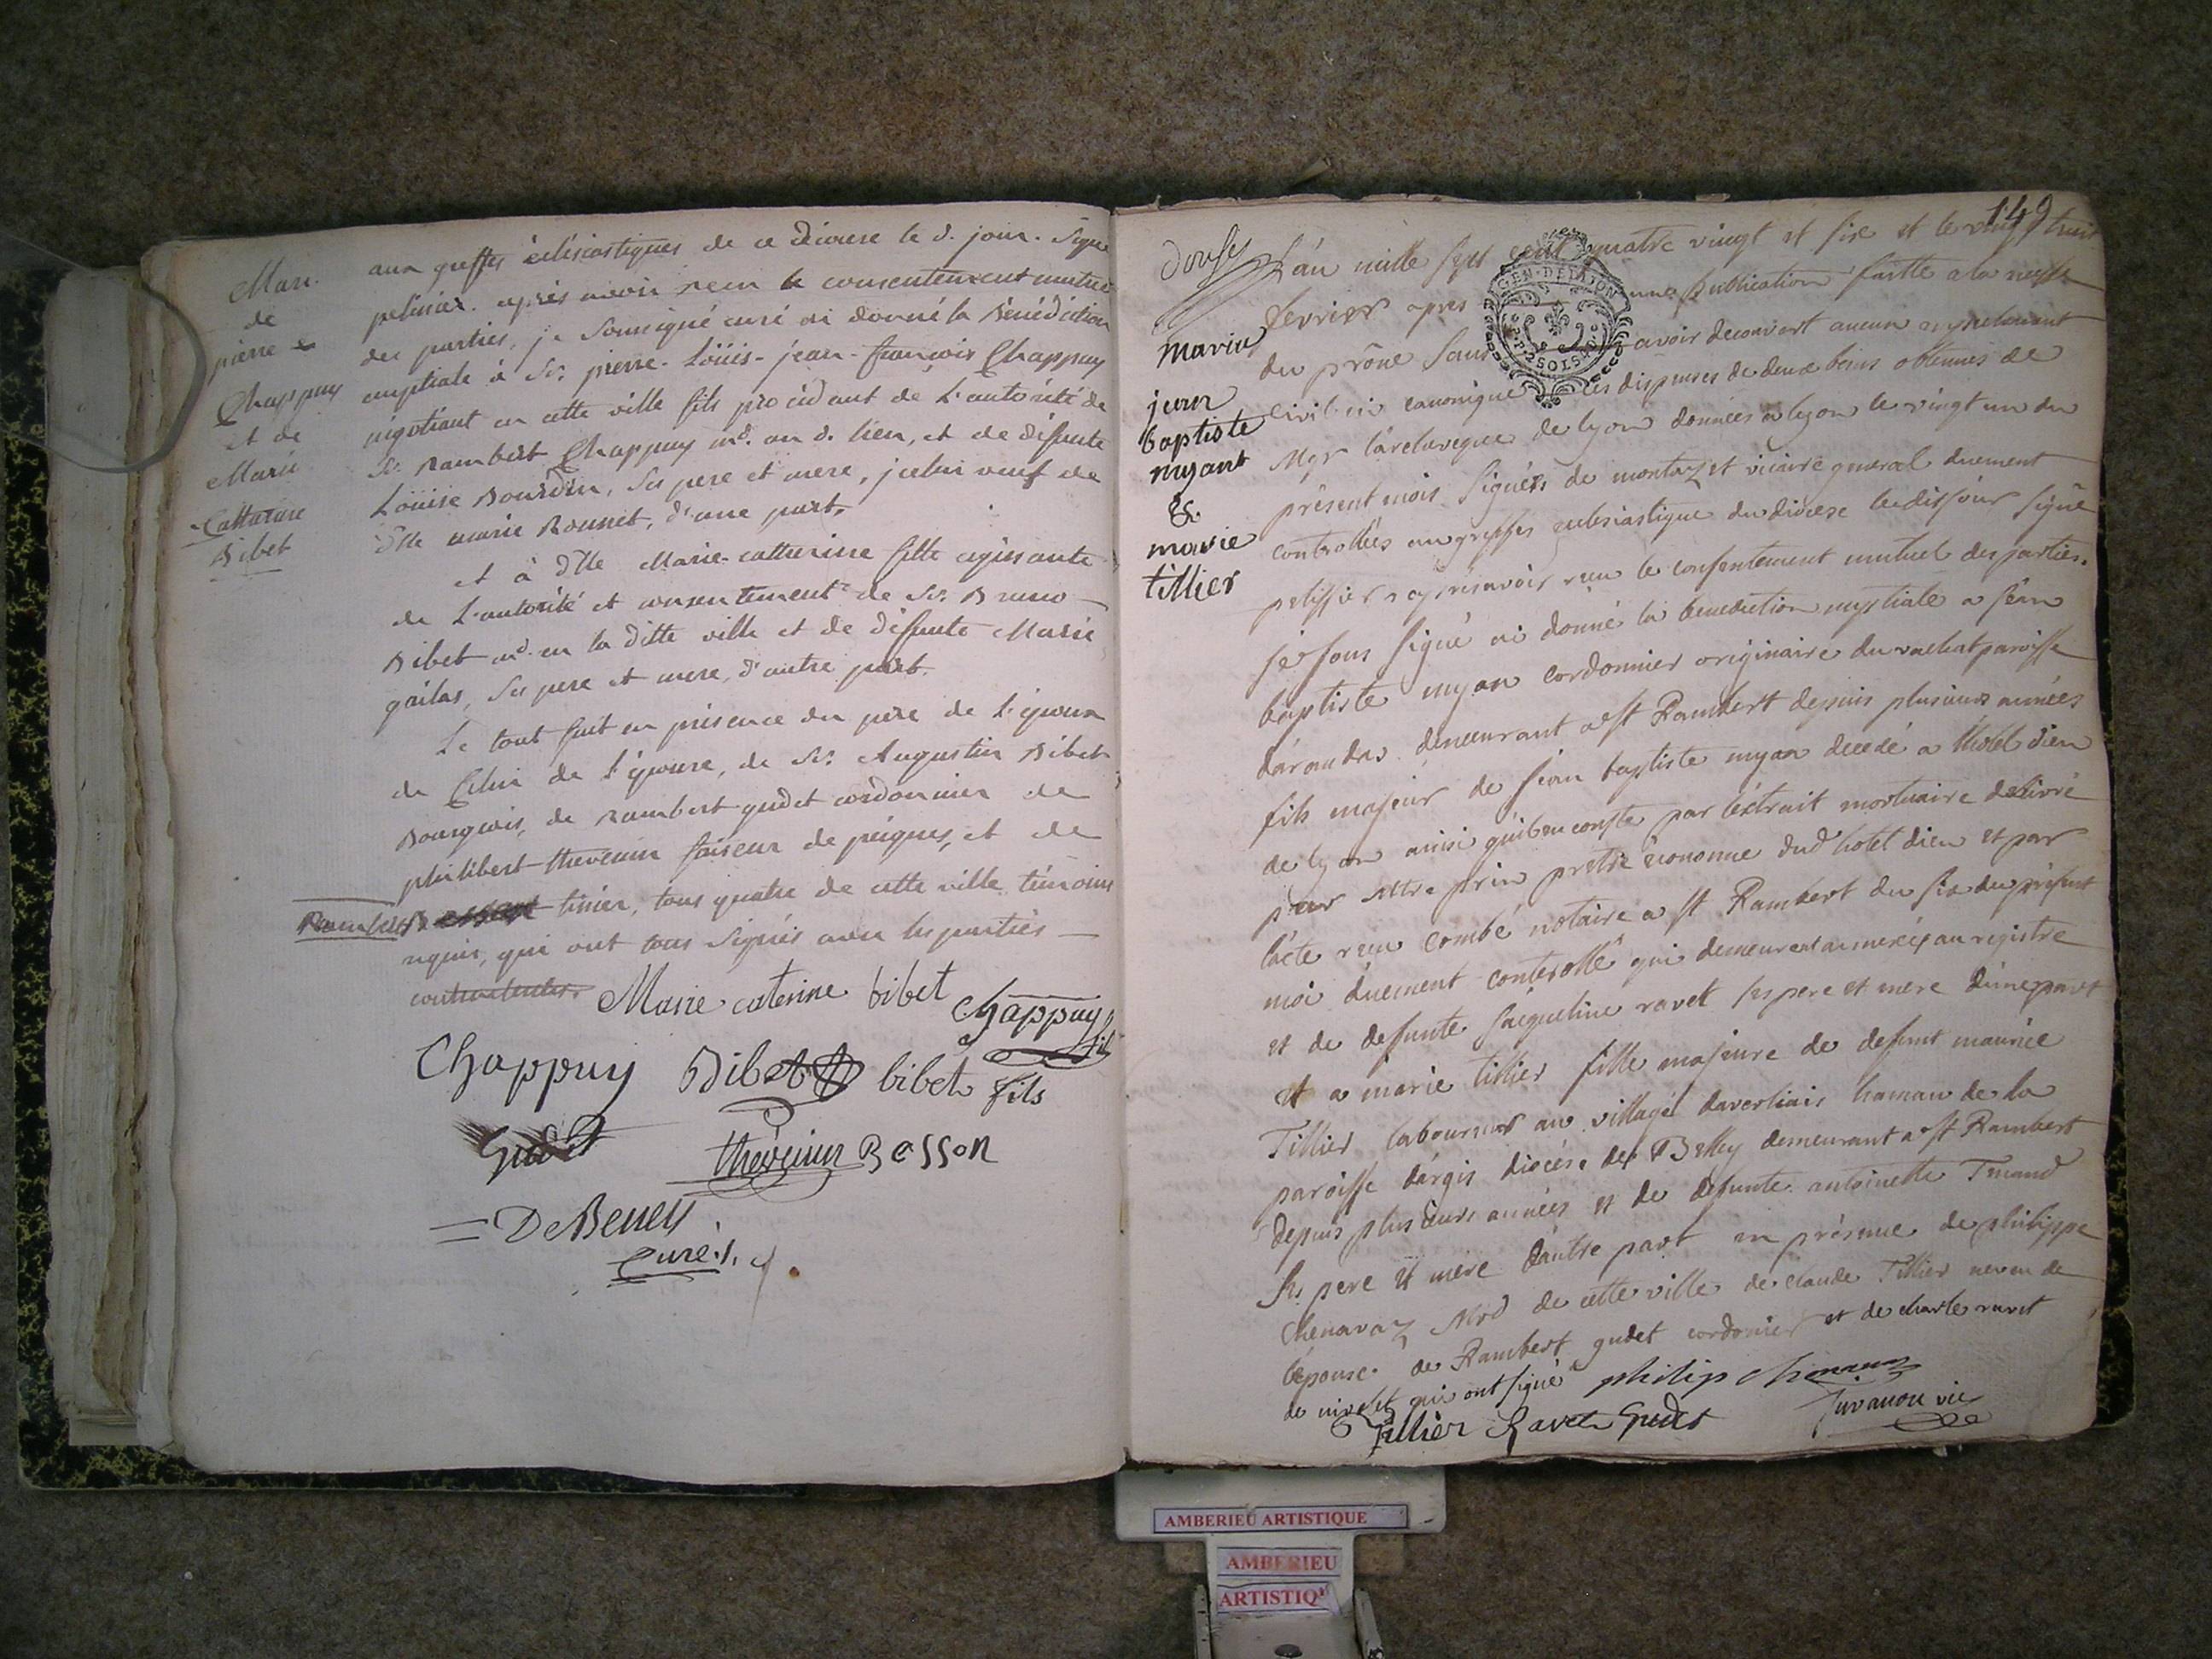 Mari.
de
pierre
Chappuy
et de
Marie
Catherine
Bibet
aux greffes éclésiastiques de ce diocese le d. jour. Signé
pelissier. après avoir recu le consentement mutuel
des parties, je soussigné curé ai donné la Bénédiction
nuptiale à Sr. pierre-Loüis-jean-francois Chappuy
négotiant en cette ville fils procédant de L'autorité de
Sr. Rambert Chappuy md. au d. lieu, et de défunte
Loüise Bourdin, ses pere et mere, jcelui veuf de
dlle marie Bonnet, d'une part.
et à dlle Marie-catherine fille agissante
de L'autorité et consentement de Sr. Bruno
Bibet md. en la ditte ville et de défunte Marie
grilas, ses pere et mere, d'autre part.
Le tout fait en présence du père de L'époux
de Celui de L'épouse, de Sr. Augustin Bibet
Bourgeois, de Rambert gudet cordonnier de
philibert thevenin faiseur de peignes, et de
Rambert tixier, tous quatre de cette ville témoins
requis, qui ont tous signés avec les parties
Marie caterine bibet Chappuy fils
Chappuy Bibet bibet fils
Gudet thévenin Besson
DeBeney
curé.
149
douse
mariage
jean
baptiste
myant
&
marie
tillier
GEN. DE DIJON
P.P. 2 SOLS 4 D.
L'an mille sept cent quatre vingt et six et le vingt huit
fevrier apres une publication faitte a la messe
du prône sans avoir decouvert aucun empechement
civil ni canonique les dispenses de deux bans obtenues de
Mgr l'archeveque de lyon données a lyon le vingt un du
présent mois signées de montazet vicaire general duement
controllées au greffes eclesiastique du diocese le dit jour signé
pelissier apres avoir recu le consentement mutuel des parties.
je sous signé ai donné la benediction nuptiale a jean
baptiste myan cordonnier originaire du vachat paroisse
d'arandas demeurant a st Rambert depuis plusieurs années
fils majeur de jean baptiste myan decedé a l'hotel dieu
de lyon ainsi qu'il en conste par l'extrait mortuaire delivré
par Mtre prin pretre économe dud hotel dieu et par
l'acte recu combe notaire a st Rambert du six du présent
moi duement controllé qui demeurent annexés au registre
et de defunte jacqueline ravet ses pere et mere d'une part
et a marie tillier fille majeure de defunt maurice
Tillier laboureur au village daverliais hamau de la
paroisse d'argis diocése de Belley demeurant a st Rambert
depuis plusieurs années et de defunte antoinette Tenand
ses pere et mere d'autre part en présence de philippe
Chenavaz Mrd de cette ville de claude Tillier neveu de
l'épouse de Rambert gudet cordonier et de charle ravet
de nivolet qui ont signé philip chenavaz
Tillier Ravet Gudet Juvanon vic
AMBERIEU ARTISTIQUE
AMBERIEU
ARTISTIQ